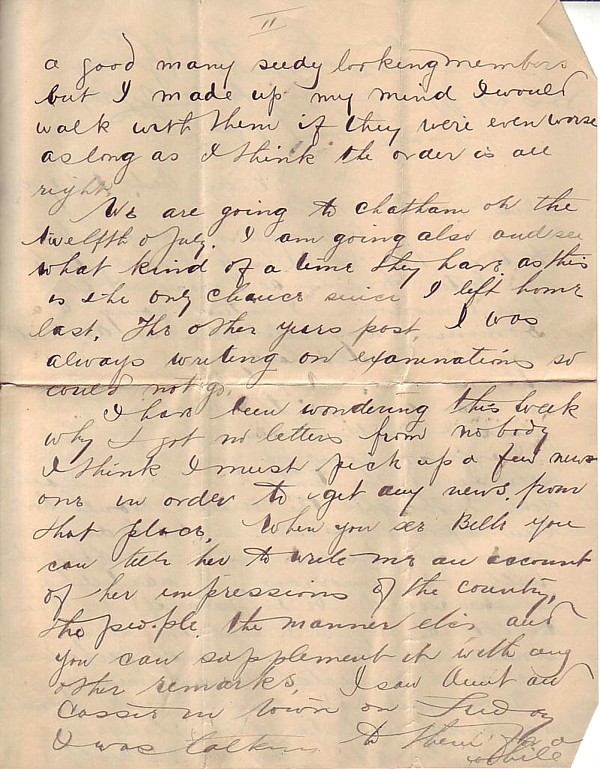 11
a good many seedy looking members
but I made up my mind I would
walk with them if they were even worse
as long as I think the order is all
right.
We are going to chatham on the
twelfth of July. I am going also and see
what kind of a time they have as this
is the only chance since I left home
last. The other years past, I was
always writing on examinations so
could not go.
I have been wondering this week
why I got no letters from nobody
I think I must pick up a few new
ones in order to get any news from
that place. When you see Bella you
can tell her to write me an account
of her impressions of the country,
the people, the manner etc. and
you can supplement it with any
other remarks. I saw Aunt and
Cassie in town on Friday
I was talking to them for a
while